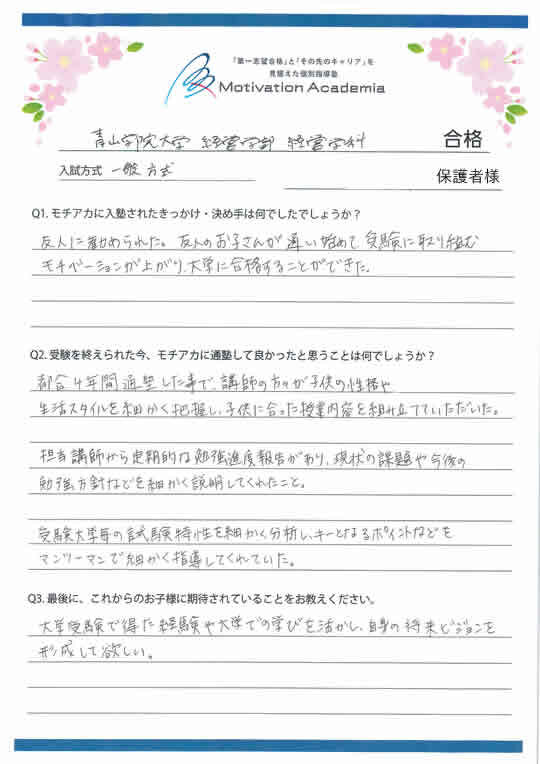 「第一志望合格」と「その先のキャリア」を
見据えた個別指導塾
Motivation Academia
青山学院大学 経営学部 経営学科 合格
入試方式 一般方式 保護者様
Q1. モチアカに入塾されたきっかけ・決め手は何でしたでしょうか？
友人に勧められた。友人のお子さんが通い始めて受験に取り組む
モチベーションが上がり、大学に合格することができた。
Q2. 受験を終えられた今、モチアカに通塾して良かったと思うことは何でしょうか？
都合4年間通塾した事で、講師の方々が子供の性格や
生活スタイルを細かく把握し、子供に合った授業内容を組み立てていただいた。
担当講師から定期的な勉強進度報告があり、現状の課題や今後の
勉強方針などを細かく説明してくれたこと。
受験大学毎の試験特性を細かく分析し、キーとなるポイントなどを
マンツーマンで細かく指導してくれていた。
Q3. 最後に、これからのお子様に期待されていることをお教えください。
大学受験で得た経験や大学での学びを活かし、自身の将来ビジョンを
形成して欲しい。